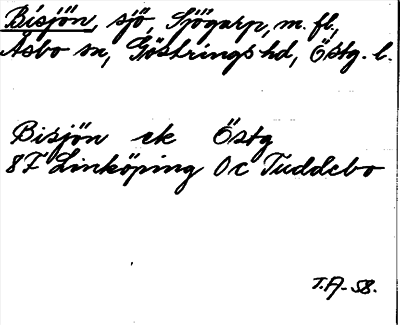 Bisjön, sjö, Sjögarp, m. fl.,
Åsbo sn, Göstrings hd, Östg. l.
Bisjön ek Östg
8F Linköping 0c Tuddebo
T.A-58.